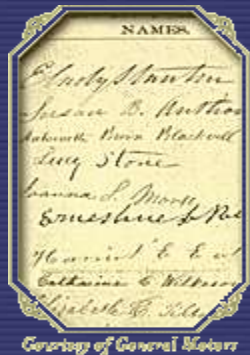 NAMES.
E. Cady Stanton
Susan B. Anthon
Antoinette Brown Blackwell
Lucy Stone
Joanna S. Morse
Ernestine L. Ros
Harriet E. E
Catharine C. Wilkeson
Elizabeth R. Tilt
Courtesy of General Motors